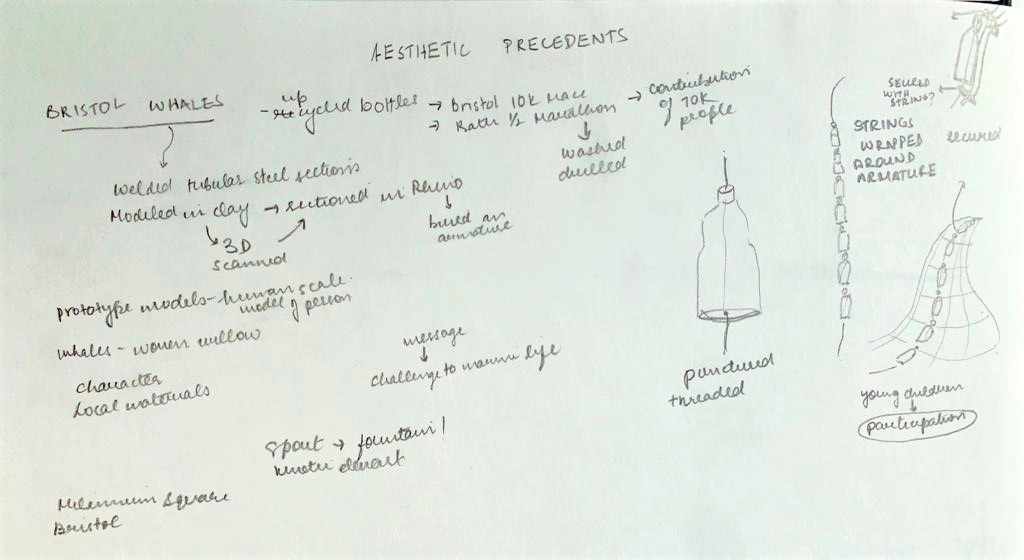 AESTHETIC PRECEDENTS
BRISTOL WHALES
- up
recycled bottles → Bristol 10k race
→ Bath 1/2 Marathon
→ contribution
of 70k
people
washed
drilled
Welded tubular steel sections
Modeled in clay → sectioned in Rhino
3D
scanned
build an
armature
prototype models - human scale.
model of person
whales - woven willow
character
Local materials
message
challenge to marine life
Spout → fountain /
kinetic element
Millennium Square
Bristol
punctured
threaded
STRINGS
WRAPPED
AROUND
ARMATURE
SECURED
WITH
STRING?
secured
young children
participation